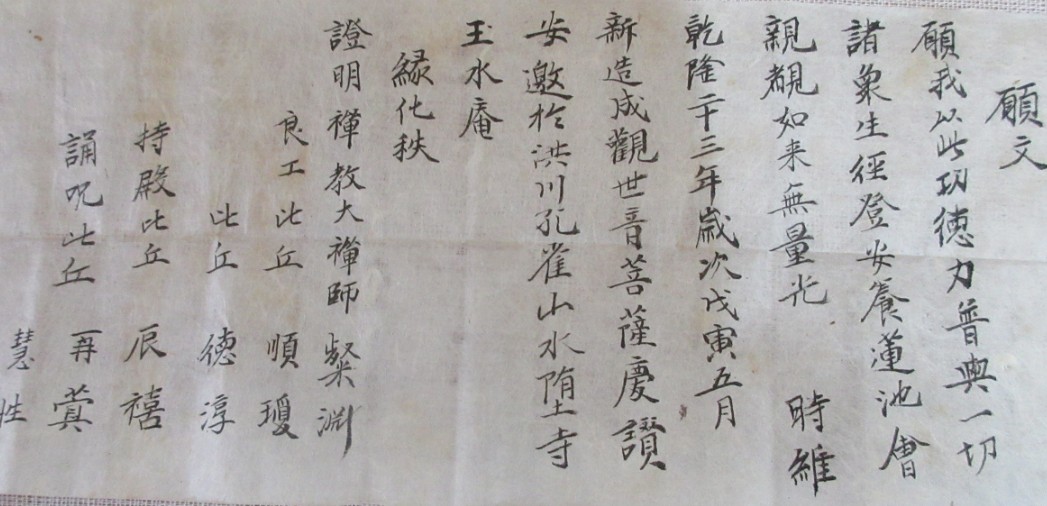 願文
願我以此功德力普與一切
諸衆生徑登安養蓮池會
親覩如来無量光 時維
乾隆二十三年歲次戊寅五月
新造成觀世音菩薩慶讚
安邀於洪川孔雀山水墮寺
玉水庵
緣化秩
證明禪教大禪師 粲淵
良工比丘 順瓊
比丘 德淳
持殿比丘 辰禧
誦呪比丘 再賞
慧性